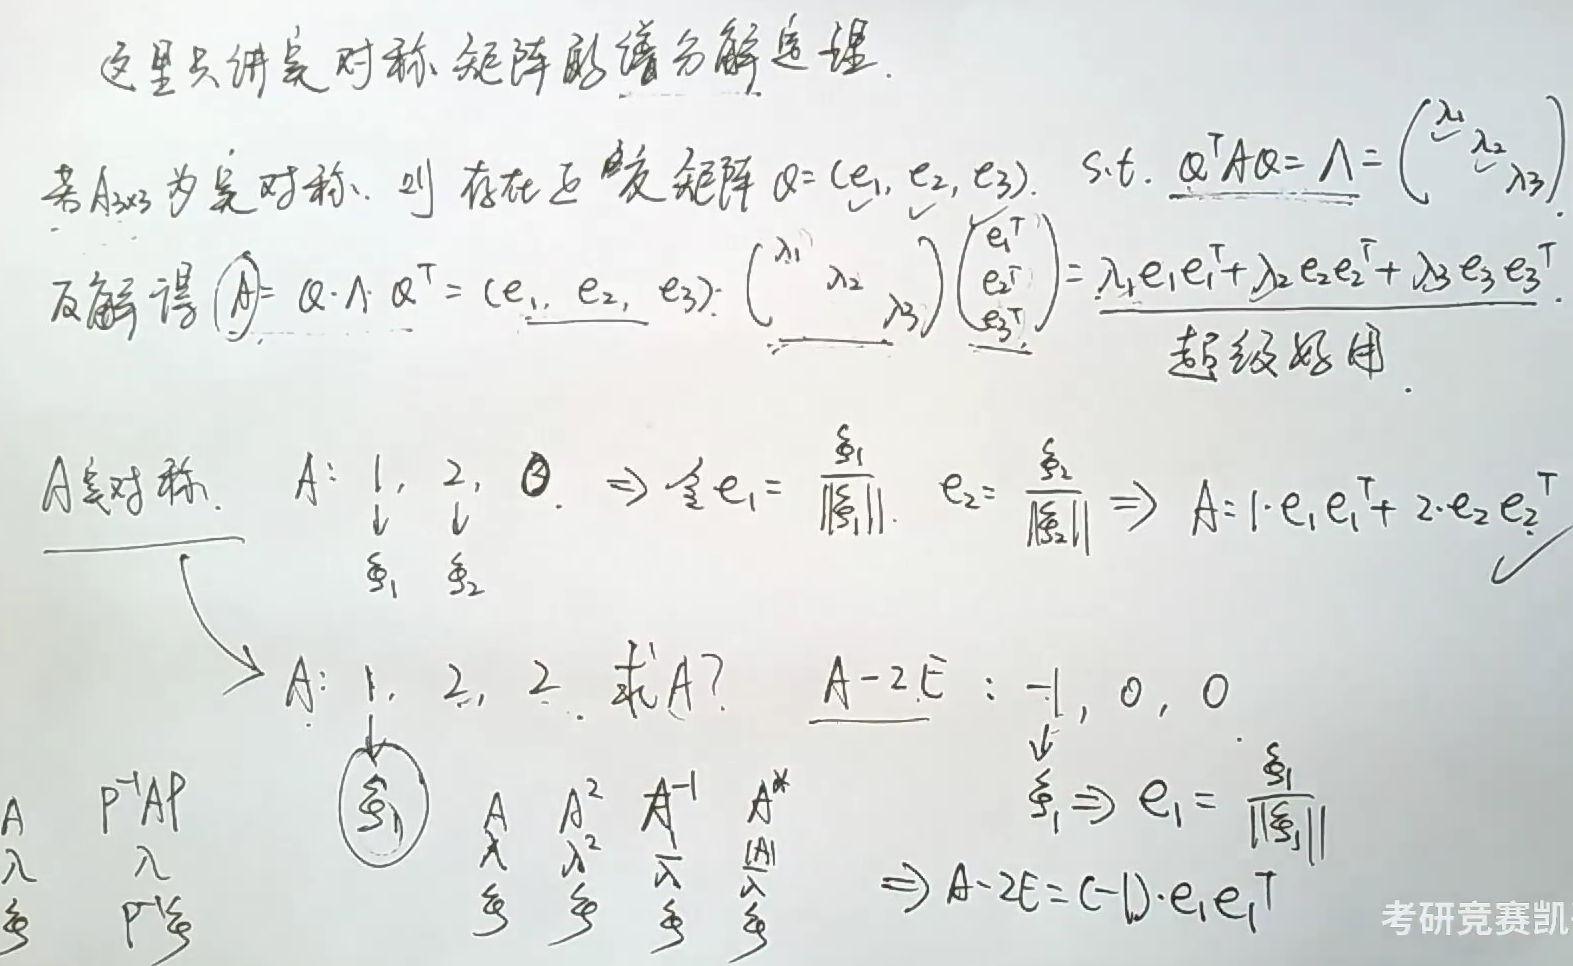 这里只讲实对称矩阵的谱分解定理.
若A₃ₓ₃为实对称. 则存在正交矩阵Q=(e₁, e₂, e₃). s.t. QᵀAQ=Λ=(λ₁ λ₂ λ₃).
反解得 A=Q·Λ·Qᵀ=(e₁, e₂, e₃)·(λ₁ λ₂ λ₃)(e₁ᵀ e₂ᵀ e₃ᵀ)=λ₁e₁e₁ᵀ+λ₂e₂e₂ᵀ+λ₃e₃e₃ᵀ.
超级好用.
A实对称. A: 1, 2, 0. ⇒ 令e₁=ξ₁/||ξ₁||. e₂=ξ₂/||ξ₂|| ⇒ A=1·e₁e₁ᵀ+2·e₂e₂ᵀ ✓
↓ ↓
ξ₁ ξ₂
A: 1, 2, 2. 求A? A-2E: -1, 0, 0.
↓ ↓
ξ₁ ξ₁ ⇒ e₁=ξ₁/||ξ₁||
⇒ A-2E=(-1)·e₁e₁ᵀ
A P⁻¹AP A A² A⁻¹ A*
λ λ λ λ² 1/λ |A|/λ
ξ P⁻¹ξ ξ ξ ξ ξ
考研竞赛凯